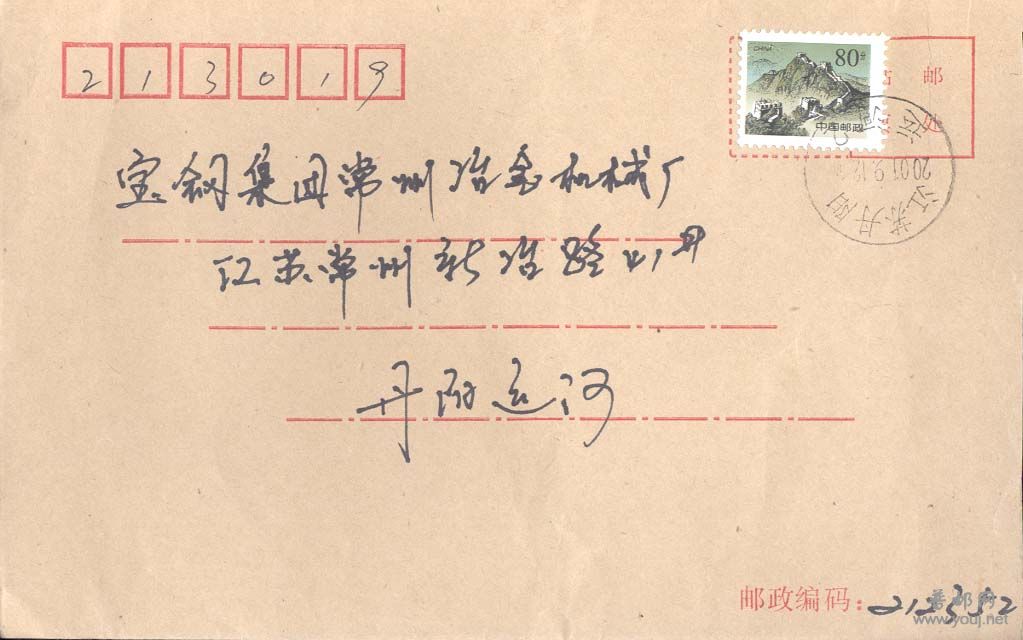 213019
CHINA
80分
中国邮政
邮
宝钢集团常州冶金机械厂
江苏常州新冶路41号
丹阳运河
江苏丹阳
2001.9.12
运河
邮政编码:212352
普邮网
www.youj.net